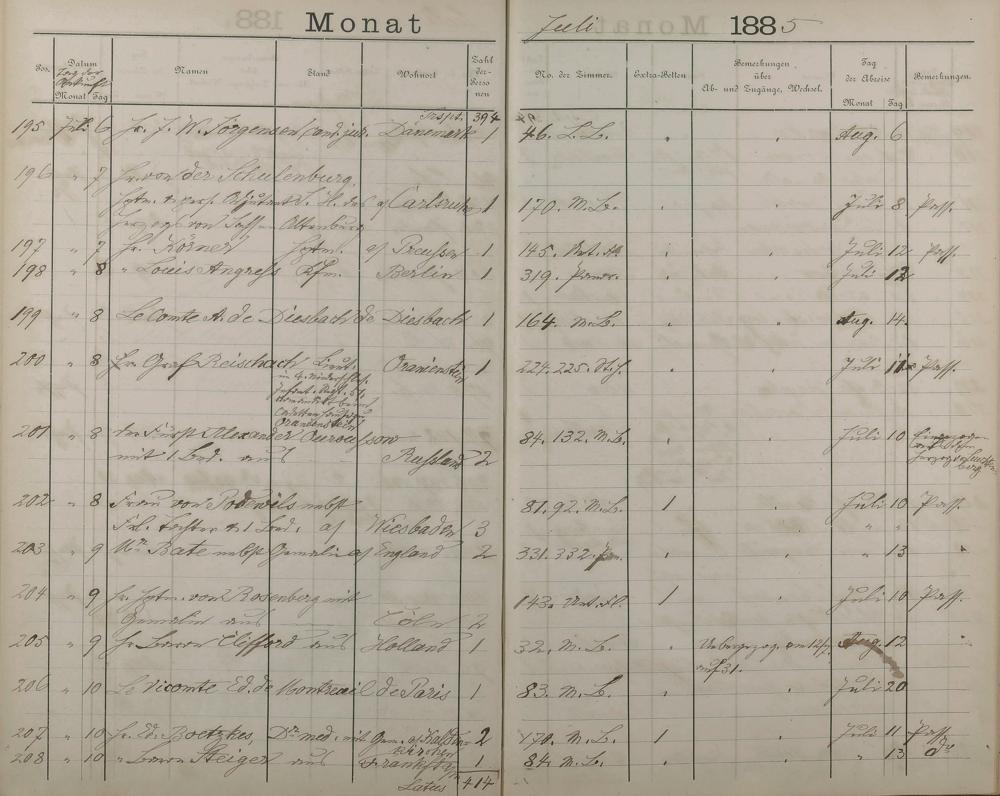 Monat Juli 1885
Pos. Datum Tag der Ankunft Monat Tag Namen Stand Wohnort Zahl der Personen No. der Zimmer. Extra-Betten Bemerkungen über Ab- und Zugänge, Wechsel. Tag der Abreise Monat Tag Bemerkungen.
Trspt. 394
195 Juli 6 Hr. J. W. Jörgensen cand. jur. Dänemark 1 46. L.L. Aug. 6
196 " 7 Hr. von der Schulenburg,
Hptm. u. pers. Adjutant S. H. des a/ Carlsruhe 1 170. M.L. Juli 8 Pass.
Herzogs von Sachsen Altenburg
197 " 7 Hr. Körner Hptm. a/ Preussen 1 145. Juli 12 Pass.
198 " 8 " Louis Angress Kfm. Berlin 1 319. Juli 12
199 " 8 Le Comte A. de Diesbach de Diesbach 1 164. M.L. Aug. 14.
200 " 8 Hr. Graf Reischach Lieut. Oranienstein 1 224. 225. Juli 11 Pass.
Oranienstein
201 " 8 der Fürst Alexander Ouroussow 84. 132. M.L. Juli 10
mit 1 Bed. aus Russland 2
202 " 8 Frau von Podewils nebst 81. 92. M.L. 1 Juli 10 Pass.
Frl. Tochter u. 1 Bed. a/ Wiesbaden 3 " "
203 " 9 Mr. Bate nebst Gemalin a/ England 2 331. 332. " 13 "
204 " 9 Hr. Hptm. von Rosenberg mit 143. 1 Juli 10 Pass.
Gemalin aus Cöln 2
205 " 9 Hr. Baron Clifford aus Holland 1 32. M.L. Umgezog. am 12/7 Aug. 12 "
auf 31.
206 " 10 Le Vicomte Ed. de Montreuil de Paris 1 83. M.L. Juli 20
207 " 10 Hr. Ed. Boetzkes, Dr. med. mit Gem. a/ 2 170. M.L. 1 Juli 11 Pass.
208 " 10 " Baron Steiger aus Frankfta/m 1 84. M.L. " 13
Latus 414